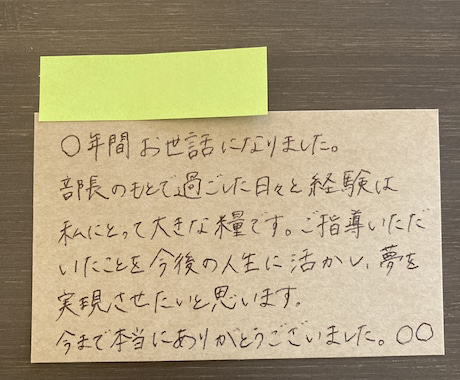 〇年間お世話になりました。
部長のもとで過ごした日々と経験は
私にとって大きな糧です。ご指導いただ
いたことを今後の人生に活かし、夢を
実現させたいと思います。
今まで本当にありがとうございました。〇〇